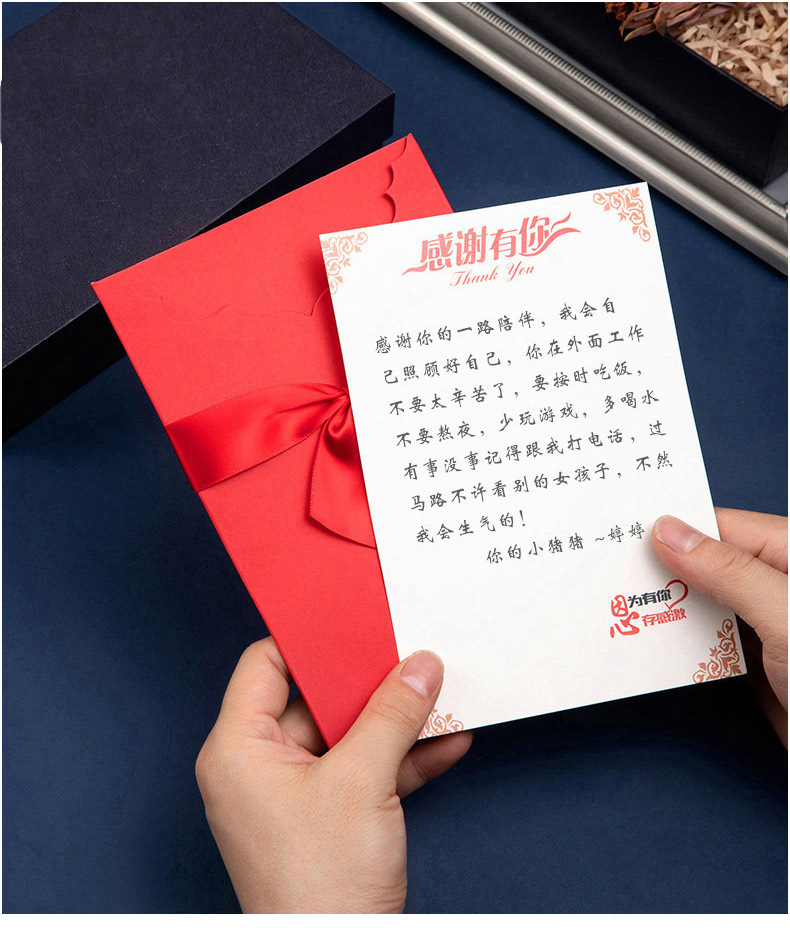 感谢有你
Thank You
感谢你的一路陪伴，我会自
己照顾好自己，你在外面工作
不要太辛苦了，要按时吃饭，
不要熬夜，少玩游戏，多喝水
有事没事记得跟我打电话，过
马路不许看别的女孩子，不然
我会生气的！
你的小猪猪 ~婷婷
因为有你
心存感激